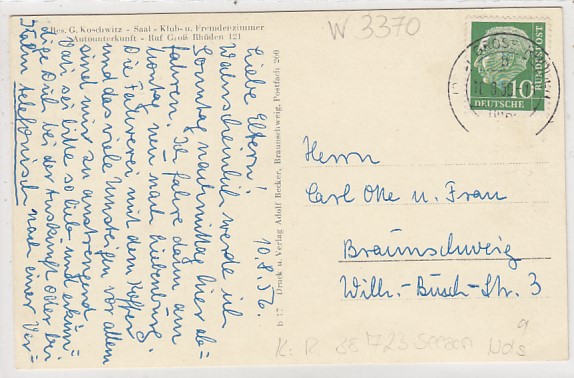 Bes. G. Koschwitz - Saal - Klub- u. Fremdenzimmer
Autounterkunft - Ruf Groß Rhüden 121
10.8.56.
Liebe Eltern!
Wahrscheinlich werde ich
Sonntag nachmittag hier ab=
fahren. Ich fahre dann am
Montag neu nach Liebenburg.
Die Fahrerei mit dem Koffer
und das viele Umsteigen vor allem
sind mir zu anstrengend.
Vati sei bitte so lieb und erkun=
dige Dich bei der Auskunft oder bei
Hahn telefonisch nach einer Ver=
b 17 Druck u. Verlag Adolf Becker, Braunschweig, Postfach 260
W 3370
GROSS
DEUTSCHE
BUNDESPOST
10
Herrn
Carl Otte u. Frau
Braunschweig
Wilh.-Busch-Str. 3
K: R 38 723 Seesen Nds
9